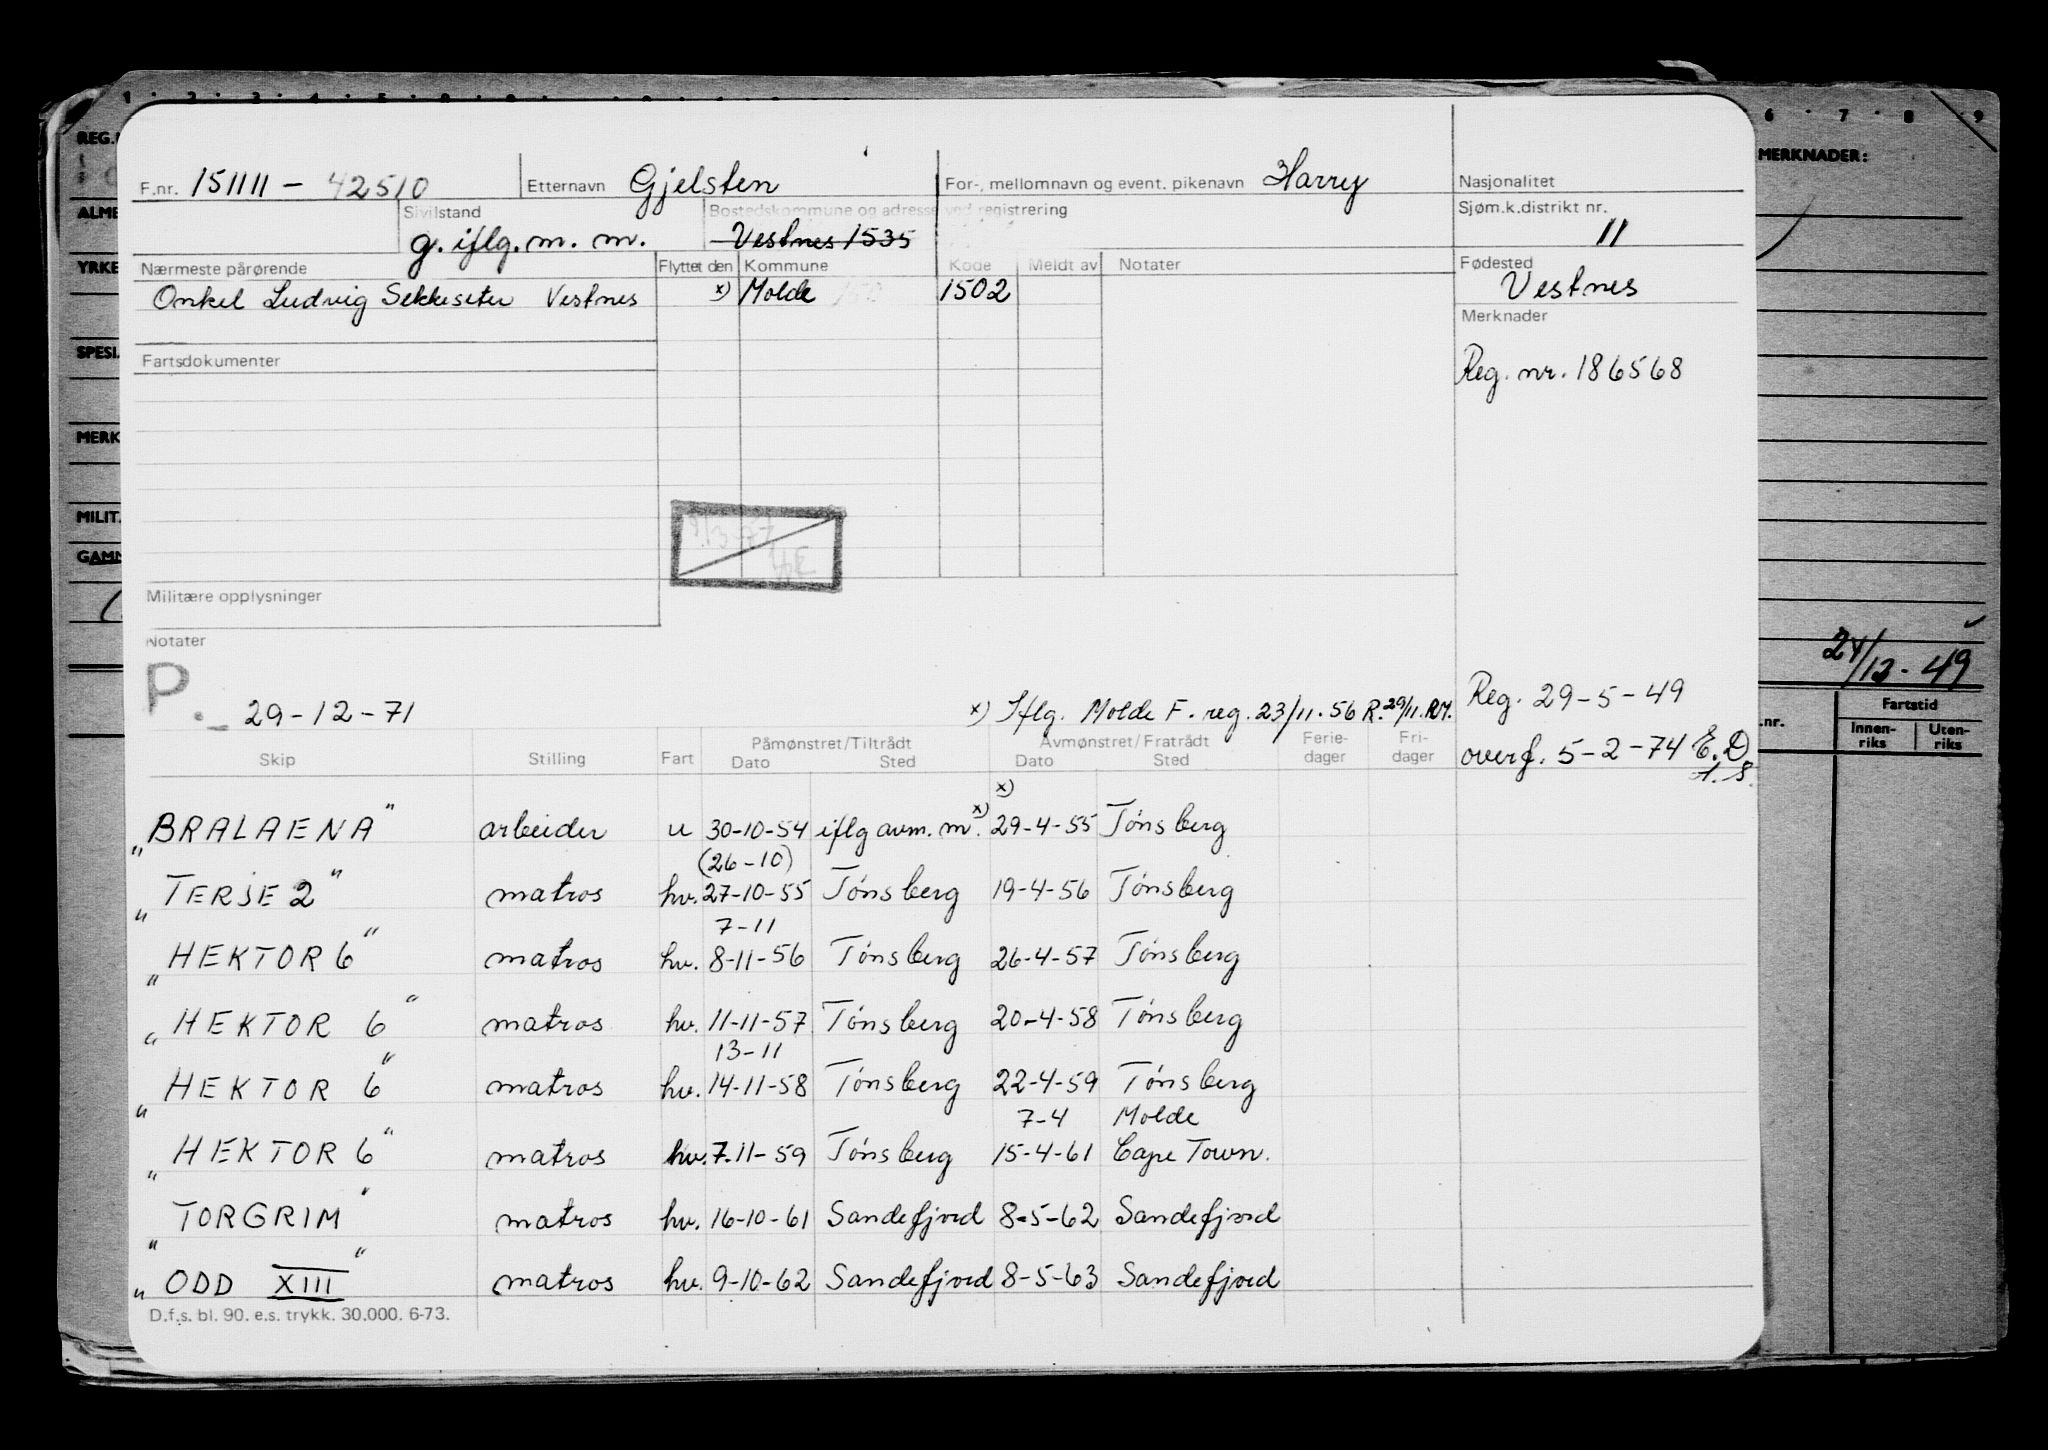 REG.
MERKNADER:
F.nr. 151111 - 42510 Etternavn Gjelsten For-, mellomnavn og event. pikenavn Harry Nasjonalitet
ALME
Sivilstand Bostedskommune og adresse ved registrering Sjøm.k.distrikt nr.
g. iflg. m. m. Vestnes 1535 11
YRKE
Nærmeste pårørende Flyttet den Kommune Kode Meldt av Notater Fødested
Onkel Ludvig Sekkeseter Vestnes x) Molde 1502 Vestnes
Merknader
SPESI.
Fartsdokumenter Reg. nr. 186568
MERK
MILIT.
GAMM
Militære opplysninger
Notater
24/12-49
P. 29-12-71 x) Iflg. Molde F. reg. 23/11.56 R. 29/11. RM. Reg. 29-5-49
Fartstid
.nr. Innen-riks Uten-riks
Skip Stilling Fart Påmønstret/Tiltrådt Avmønstret/Fratrådt Ferie-dager Fri-dager overf. 5-2-74 E.D.
Dato Sted Dato Sted
x)
"BRALAENA" arbeider u 30-10-54 iflg avm. m. x) 29-4-55 Tónsberg
(26-10)
"TERJE 2" matros hv. 27-10-55 Tónsberg 19-4-56 Tónsberg
7-11
"HEKTOR 6" matros hv. 8-11-56 Tónsberg 26-4-57 Tónsberg
"HEKTOR 6" matros hv. 11-11-57 Tónsberg 20-4-58 Tónsberg
13-11
"HEKTOR 6" matros hv. 14-11-58 Tónsberg 22-4-59 Tónsberg
7-4 Molde
"HEKTOR 6" matros hv. 7.11-59 Tónsberg 15-4-61 Cape Town.
"TORGRIM" matros hv. 16-10-61 Sandefjord 8-5-62 Sandefjord
"ODD XIII" matros hv. 9-10-62 Sandefjord 8-5-63 Sandefjord
D.f.s. bl. 90. e.s. trykk. 30.000. 6-73.